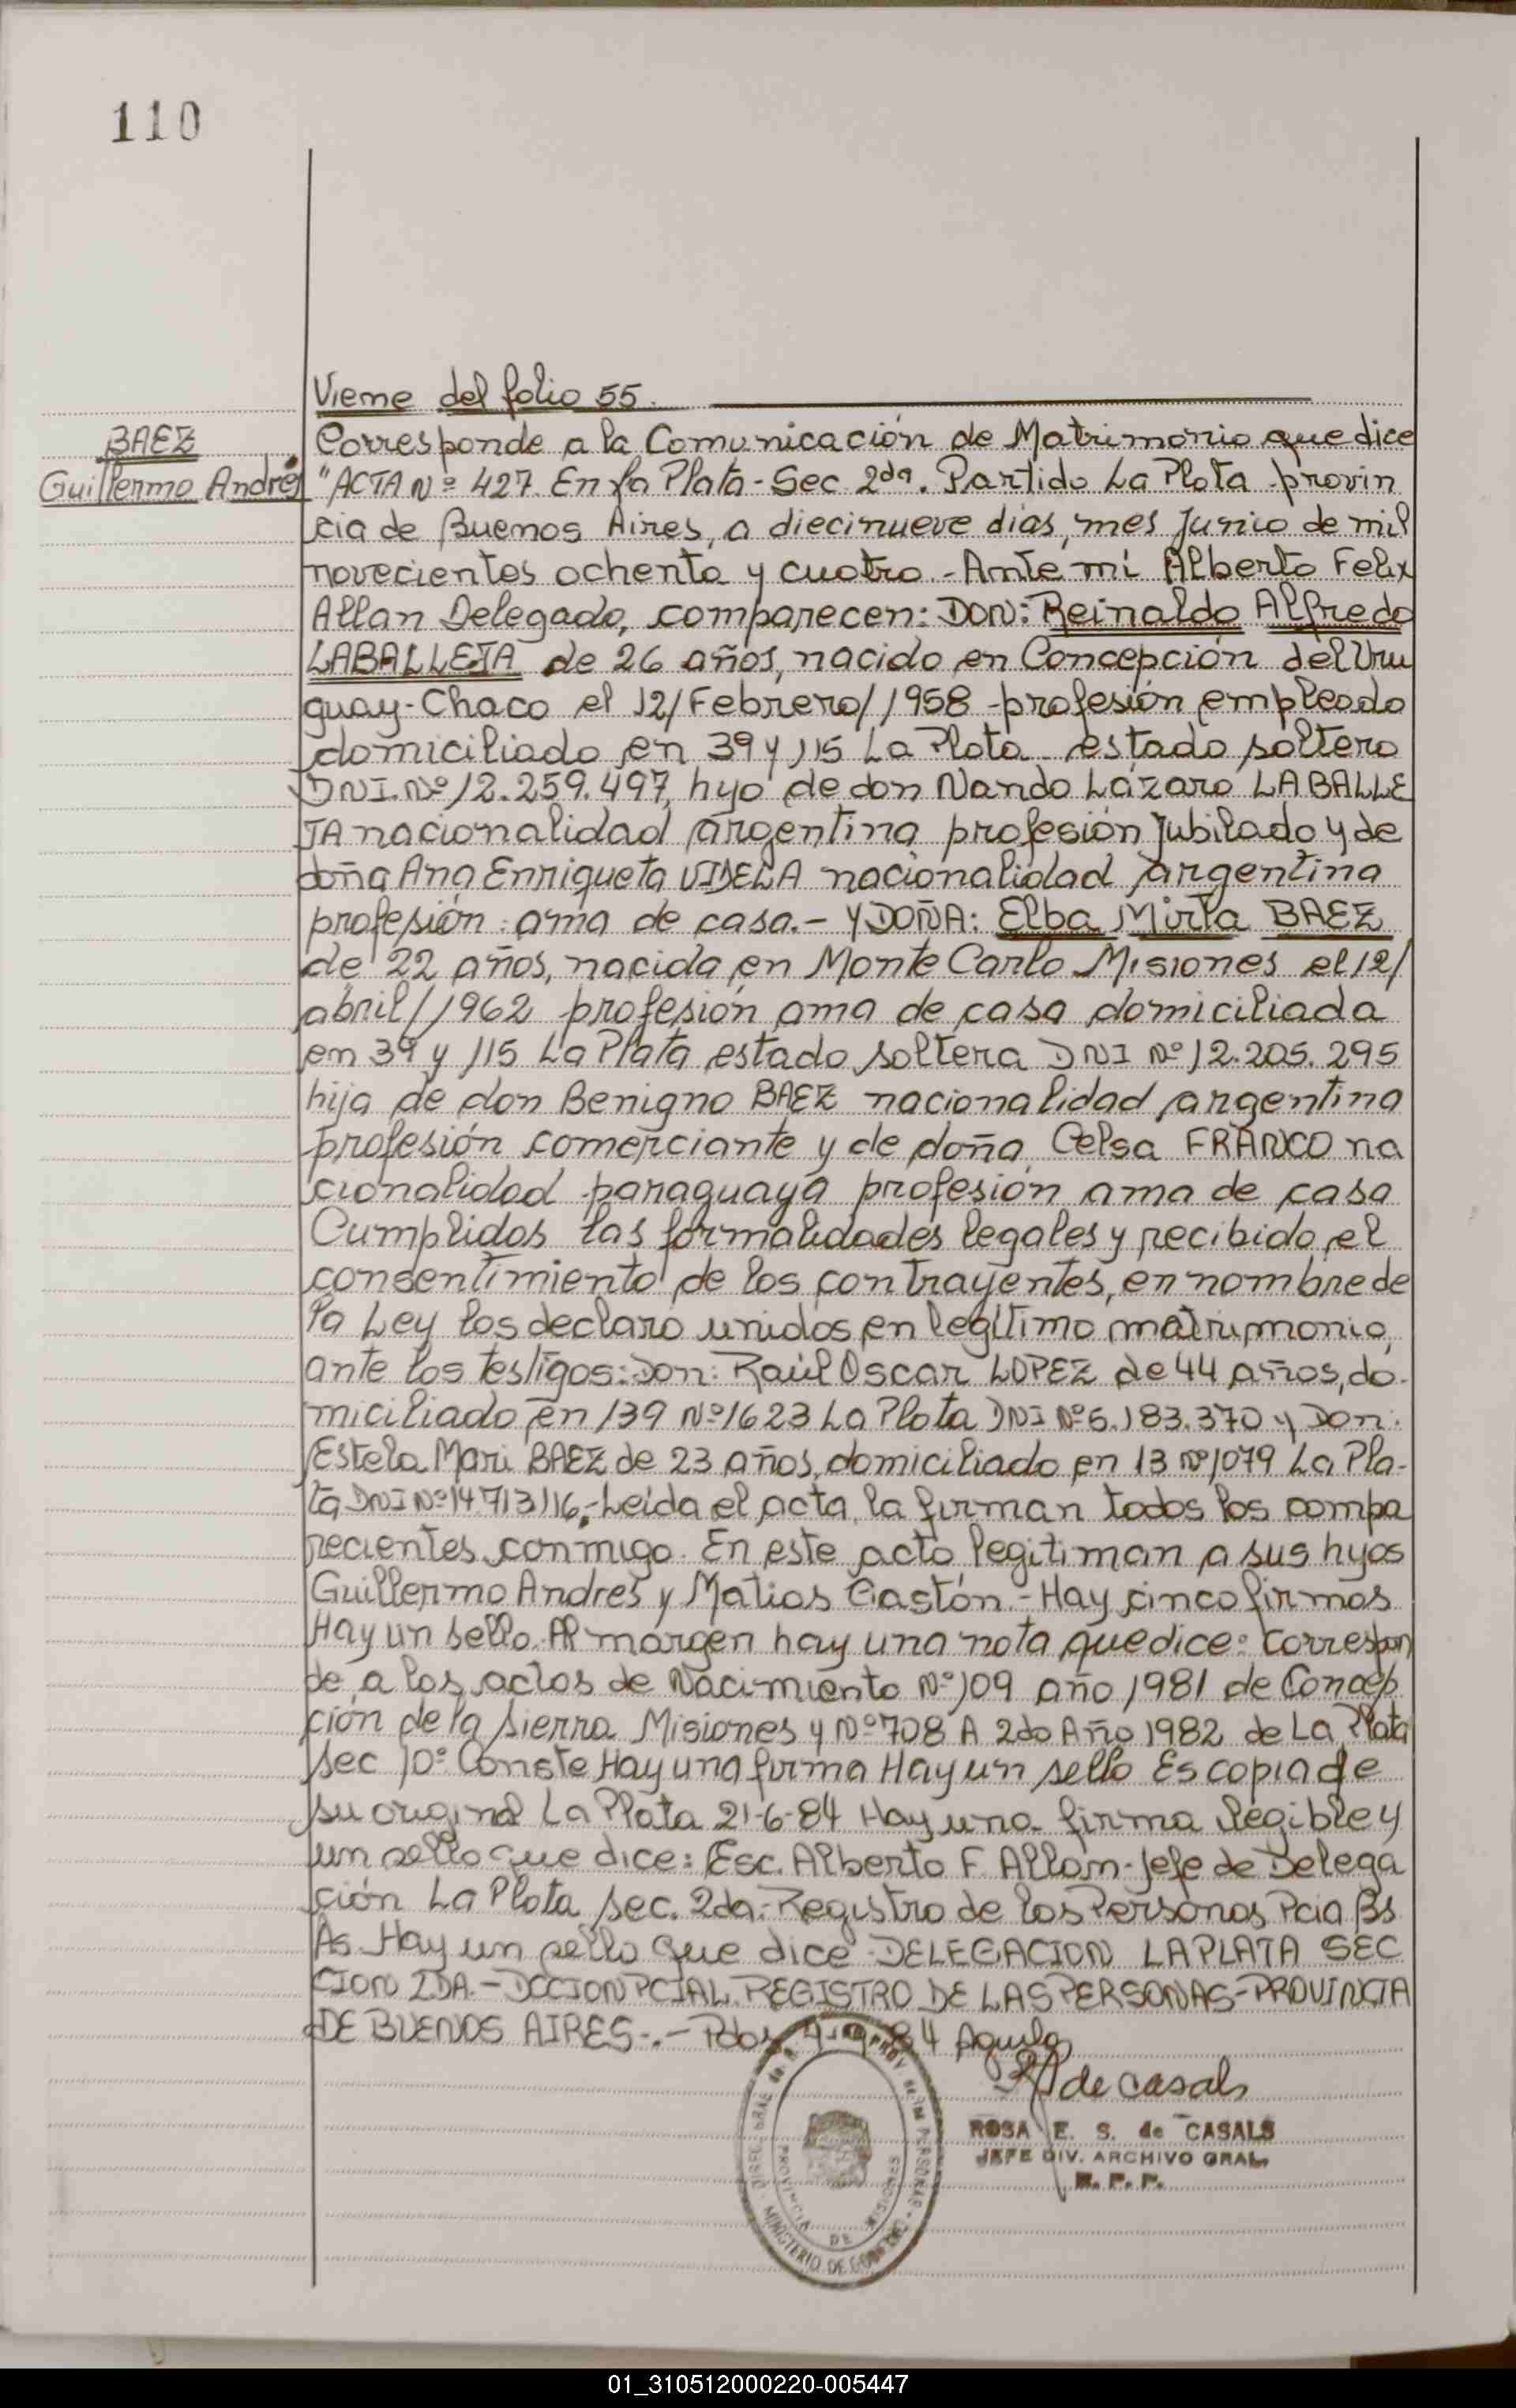 110
Viene del folio 55.
BAEZ
Guillermo Andrés
Corresponde a la Comunicación de Matrimonio que dice
"ACTA Nº 427. En La Plata - Sec 2da. Partido La Plata provin
cia de Buenos Aires, a diecinueve dias, mes Junio de mil
novecientos ochenta y cuatro - Ante mi Alberto Felix
Allan Delegado, comparecen: DON: Reinaldo Alfredo
LABALLEJA de 26 años, nacido en Concepción del Uru
guay - Chaco el 12/Febrero/1958 - profesión empleado
domiciliado en 39 y 115 La Plata estado soltero
DNI. Nº 12.259.497, hijo de don Nando Lázaro LABALLE
JA nacionalidad argentina profesión Jubilado y de
doña Ana Enriqueta VIDELA nacionalidad argentina
profesión ama de casa.- Y DOÑA: Elba Mirta BAEZ
de 22 años, nacida en Monte Carlo Misiones el 12/
abril/1962 profesión ama de casa domiciliada
en 39 y 115 La Plata estado soltera DNI Nº 12.205.295
hija de don Benigno BAEZ nacionalidad argentina
profesión comerciante y de doña Celsa FRANCO na
cionalidad paraguaya profesión ama de casa
Cumplidos las formalidades legales y recibido el
consentimiento de los contrayentes, en nombre de
la Ley los declaro unidos en legítimo matrimonio,
ante los testigos: Don: Raúl Oscar LOPEZ de 44 años, do-
miciliado en 139 Nº 1623 La Plata DNI Nº 5.183.370 y Don:
Estela Mari BAEZ de 23 años, domiciliado en 13 Nº 1079 La Pla-
ta DNI Nº 14 713116.- Leída el acta, la firman todos los compa
recientes conmigo. En este acto legitiman a sus hijos
Guillermo Andrés y Matias Gastón - Hay cinco firmas
Hay un sello. Al margen hay una nota que dice: Correspon
de a los actos de Nacimiento Nº 109 año 1981 de Concep
ción de la Sierra Misiones y Nº 708 A 2do Año 1982 de La Plata
Sec 10º Conste Hay una firma Hay un sello Es copia de
su original La Plata 21-6-84 Hay una firma legible y
un sello que dice: Esc. Alberto F. Allan - Jefe de Delega
ción La Plata Sec. 2da.- Registro de las Personas Pcia Bs
As. Hay un sello que dice DELEGACION LA PLATA SEC
CION 2DA.- DCCION PCIAL. REGISTRO DE LAS PERSONAS - PROVINCIA
DE BUENOS AIRES-.- Pdas 84
de Casals
ROSA E. S. de CASALS
JEFE DIV. ARCHIVO GRAL.
R. P. P.
PROVINCIA DE MISIONES
MINISTERIO DE GOBIERNO
01_310512000220-005447